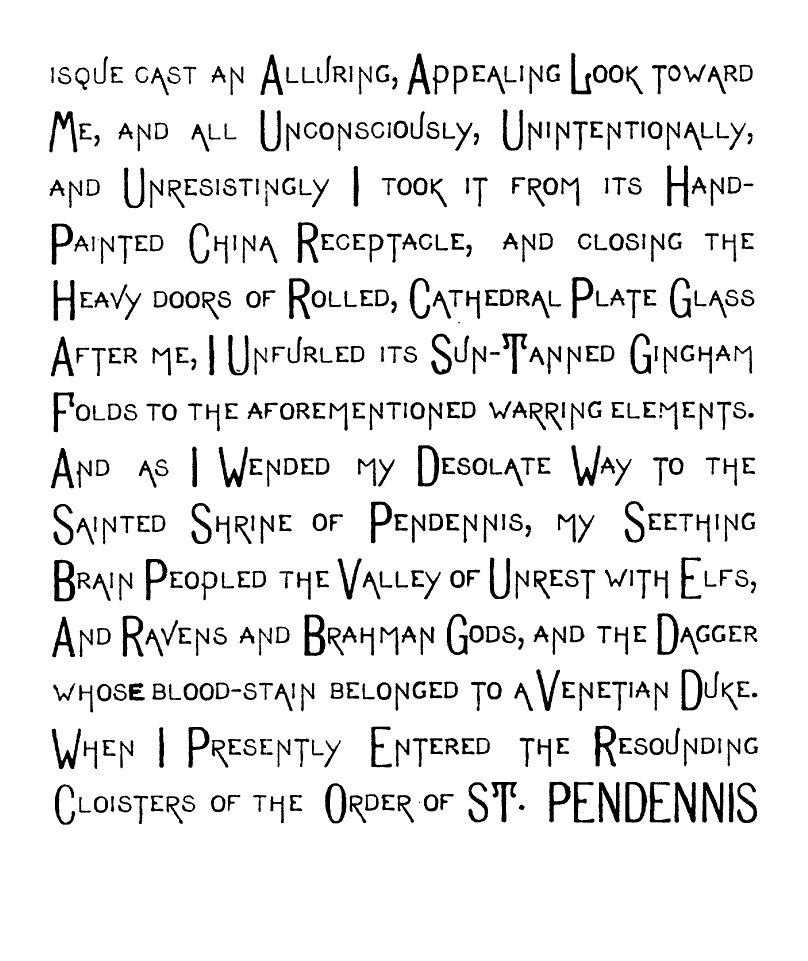 isque cast an Alluring, Appealing Look toward
Me, and all Unconsciously, Unintentionally,
and Unresistingly I took it from its Hand-
Painted China Receptacle, and closing the
Heavy doors of Rolled, Cathedral Plate Glass
After me, I Unfurled its Sun-Tanned Gingham
Folds to the aforementioned warring elements.
And as I Wended my Desolate Way to the
Sainted Shrine of Pendennis, my Seething
Brain Peopled the Valley of Unrest with Elfs,
And Ravens and Brahman Gods, and the Dagger
whose blood-stain belonged to a Venetian Duke.
When I Presently Entered the Resounding
Cloisters of the Order of ST. PENDENNIS